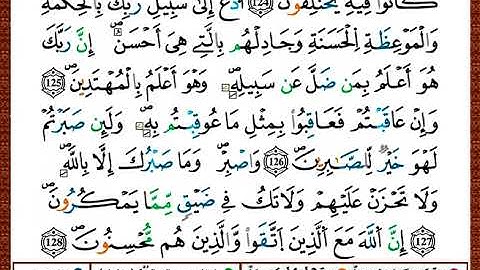 كَانُوا۟ فِيهِ يَخْتَلِفُونَ ﴿124﴾ ٱدْعُ إِلَىٰ سَبِيلِ رَبِّكَ بِالْحِكْمَةِ
وَالْمَوْعِظَةِ الْحَسَنَةِ وَجَادِلْهُم بِالَّتِي هِيَ أَحْسَنُ ۚ إِنَّ رَبَّكَ
هُوَ أَعْلَمُ بِمَن ضَلَّ عَن سَبِيلِهِ ۖ وَهُوَ أَعْلَمُ بِالْمُهْتَدِينَ ﴿125﴾
وَإِنْ عَاقَبْتُمْ فَعَاقِبُوا۟ بِمِثْلِ مَا عُوقِبْتُم بِهِ ۖ وَلَئِن صَبَرْتُمْ
لَهُوَ خَيْرٌ لِّلصَّابِرِينَ ﴿126﴾ وَاصْبِرْ وَمَا صَبْرُكَ إِلَّا بِاللَّهِ ۚ
وَلَا تَحْزَنْ عَلَيْهِمْ وَلَا تَكُ فِي ضَيْقٍ مِّمَّا يَمْكُرُونَ
﴿127﴾ إِنَّ اللَّهَ مَعَ الَّذِينَ اتَّقَوا۟ وَّالَّذِينَ هُم مُّحْسِنُونَ ﴿128﴾